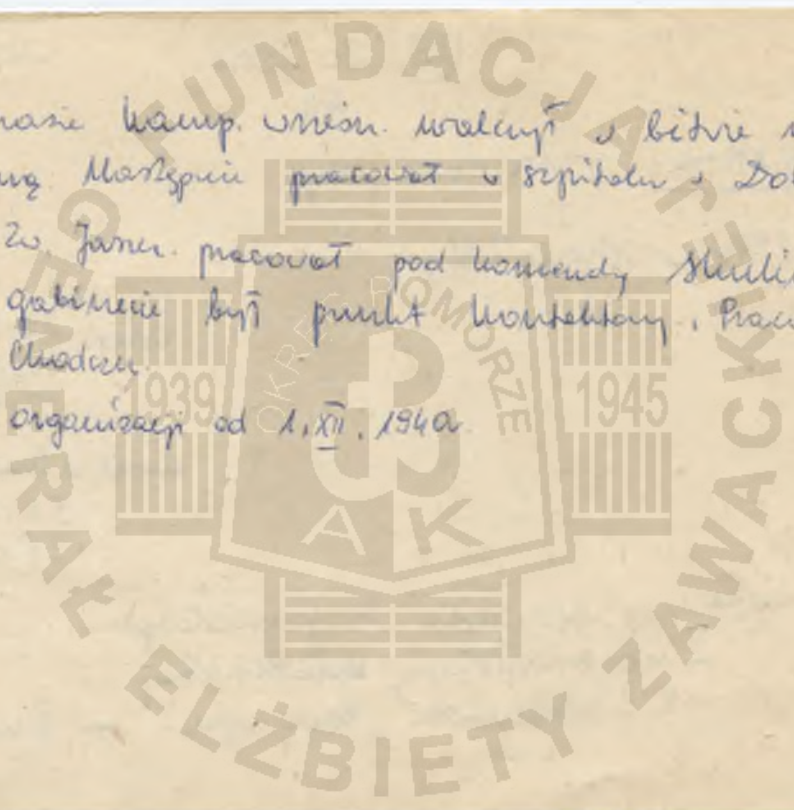 kamp. wrześn. walczył w bitwie
Następnie pracował w szpitalu w Do
pracował pod komendą
gabinecie był punkt kontaktowy. Prac
Chodczu
organizacji od 1.XII.1940
FUNDACJA GENERAŁ ELŻBIETY ZAWACKIEJ
OKRĘG POMORZE
1939 1945
AK